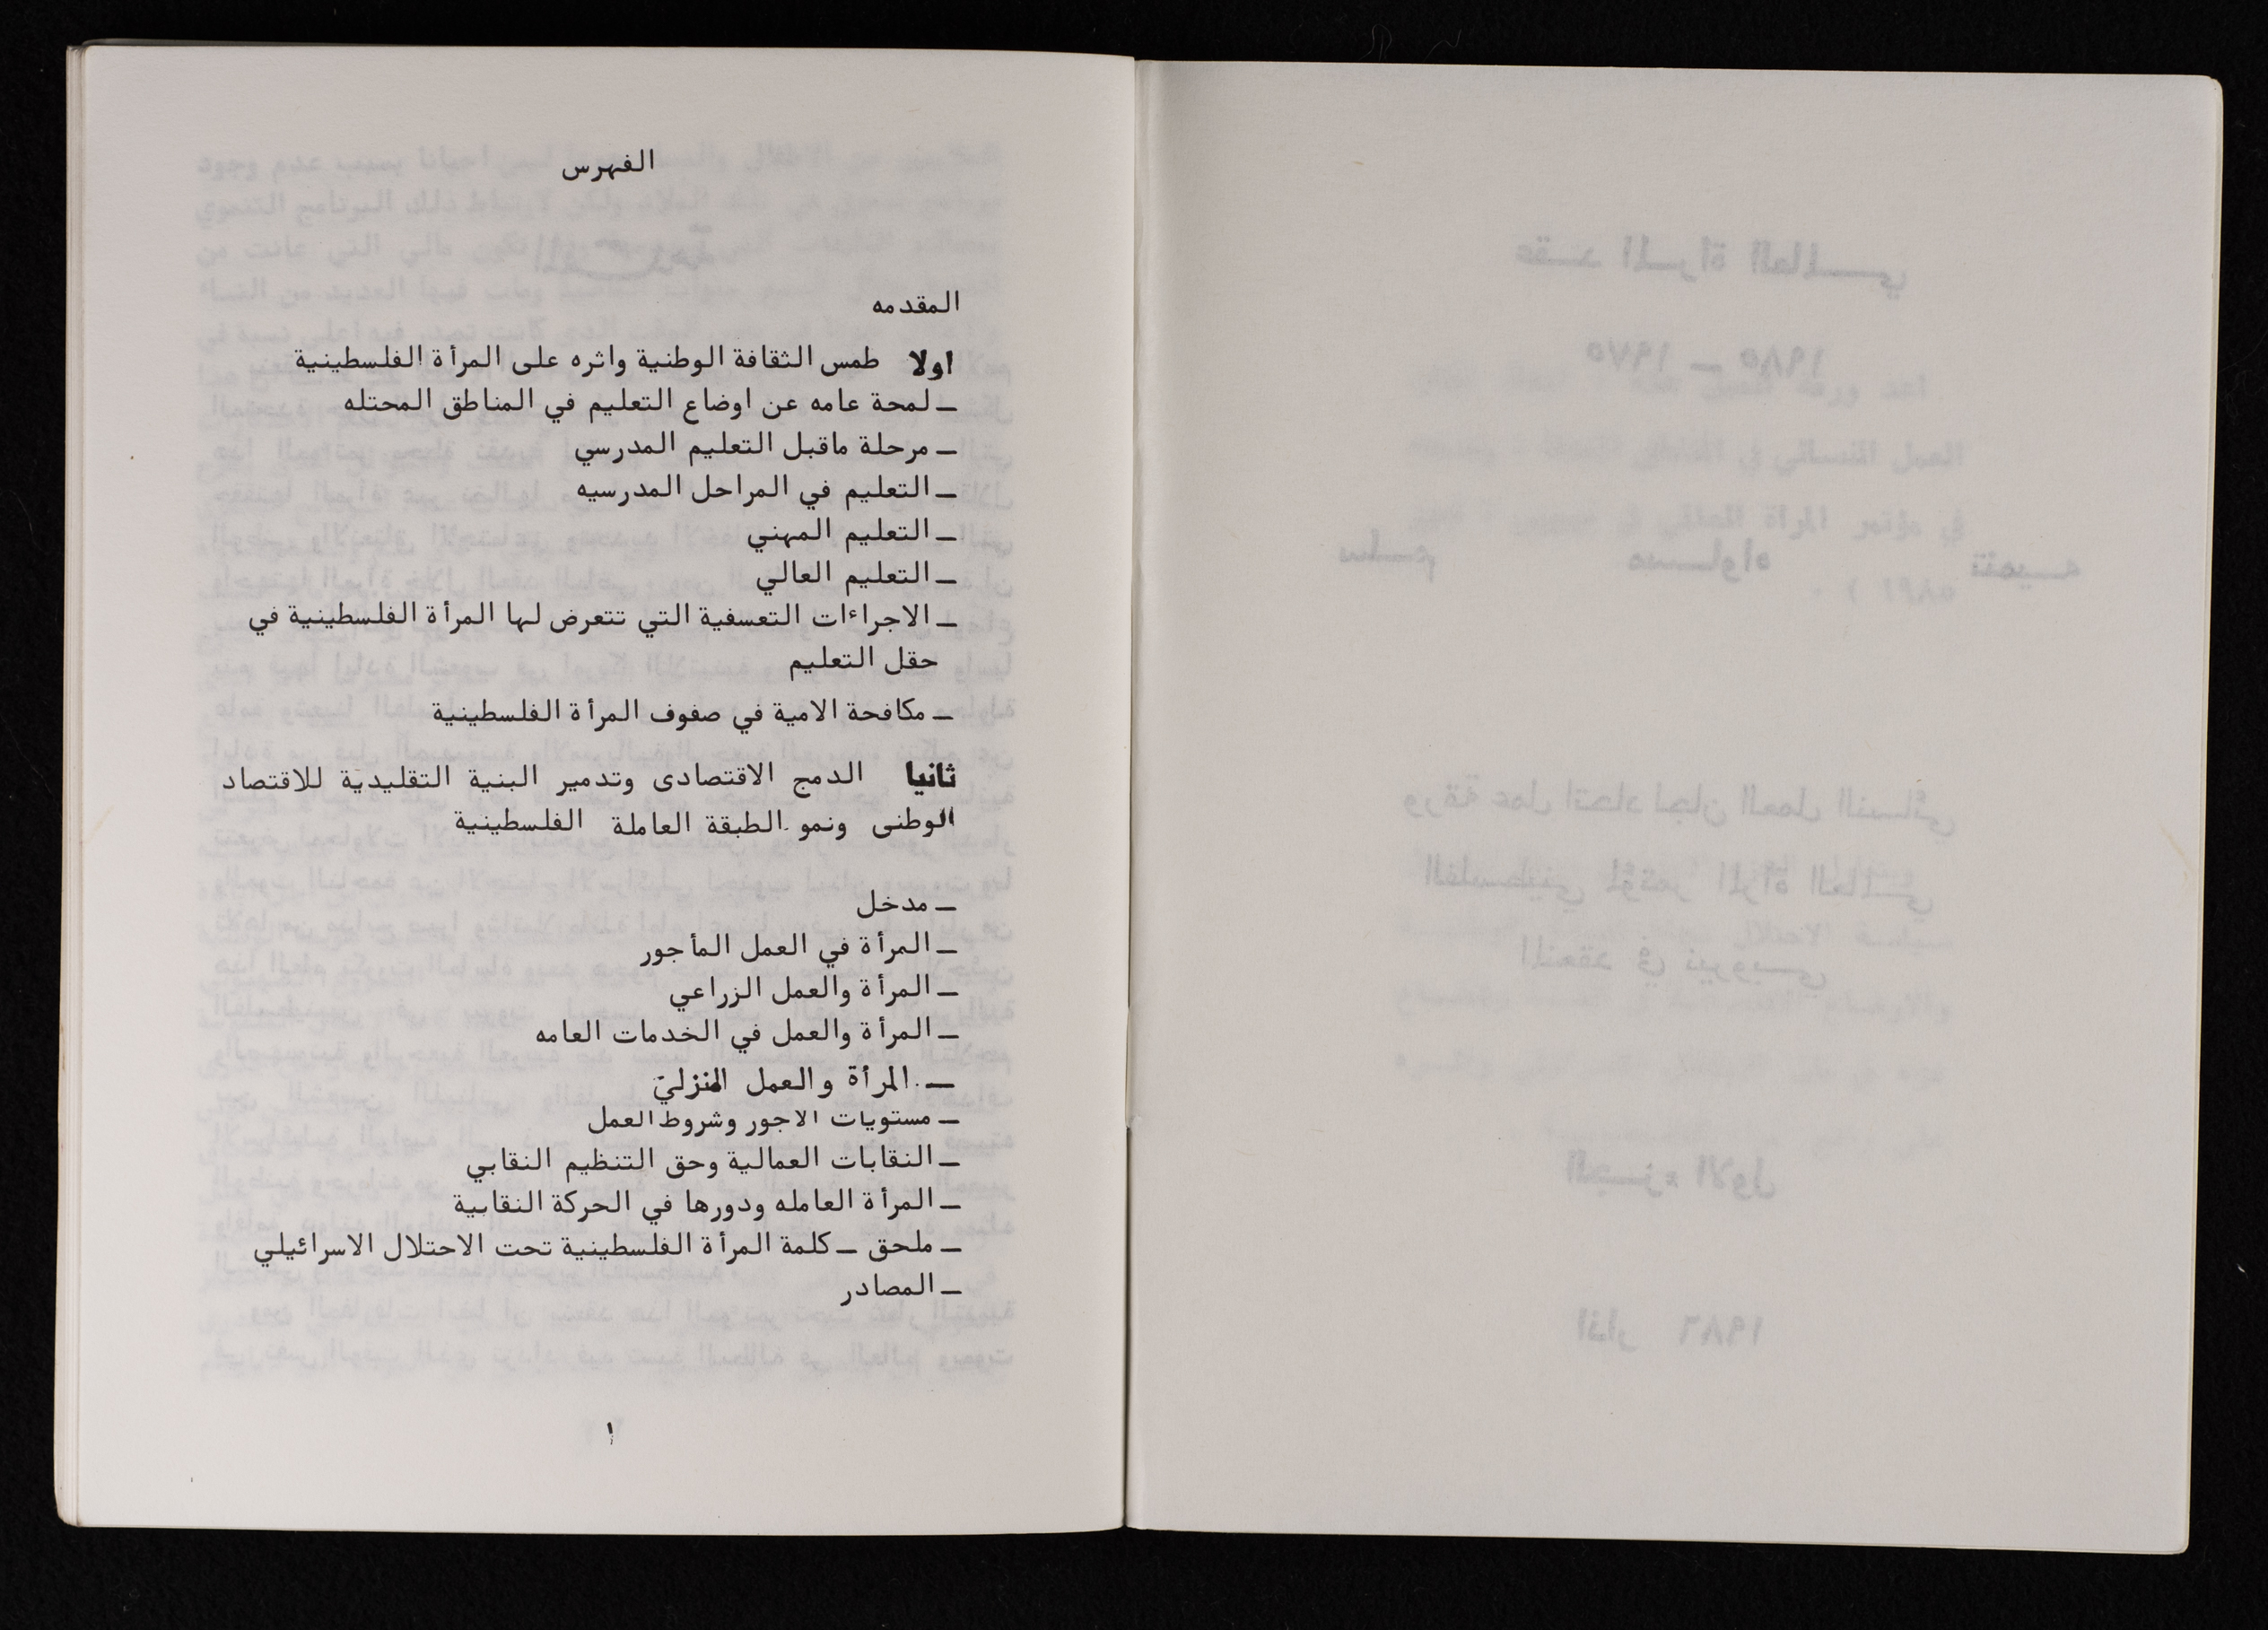 الفهرس
المقدمه
اولا طمس الثقافة الوطنية واثره على المرأة الفلسطينية
ــ لمحة عامه عن اوضاع التعليم في المناطق المحتله
ــ مرحلة ماقبل التعليم المدرسي
ــ التعليم في المراحل المدرسيه
ــ التعليم المهني
ــ التعليم العالي
ــ الاجراءات التعسفية التي تتعرض لها المرأة الفلسطينية في
حقل التعليم
ــ مكافحة الامية في صفوف المرأة الفلسطينية
ثانيا الدمج الاقتصادى وتدمير البنية التقليدية للاقتصاد
الوطنى ونمو الطبقة العاملة الفلسطينية
ــ مدخل
ــ المرأة في العمل المأجور
ــ المرأة والعمل الزراعي
ــ المرأة والعمل في الخدمات العامه
ــ المرأة والعمل المنزلي
ــ مستويات الاجور وشروط العمل
ــ النقابات العمالية وحق التنظيم النقابي
ــ المرأة العامله ودورها في الحركة النقابية
ــ ملحق ــ كلمة المرأة الفلسطينية تحت الاحتلال الاسرائيلي
ــ المصادر
١